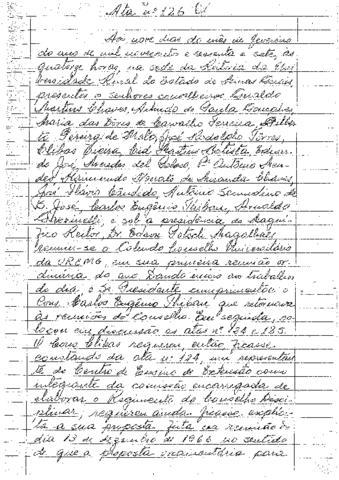 Ata nº 126
Aos nove dias do mês de fevereiro
do ano de mil novecentos e sessenta e sete, às
quatorze horas, na sede da Reitoria da Uni-
versidade Rural do Estado de Minas Gerais,
presentes os senhores conselheiros Geraldo
Martins Chaves, de Paula Gonçalves,
Maria das Dores de Carvalho Ferreira,
Pereira de Melo, José Rodolpho Torres,
Clibas Vieira, Cid Batista, Edmun-
do José, del Soloso, Pe. Antônio Men-
des, Raimundo Nonato de Miranda Chaves,
José Flávio Cândido, Antônio Secundino de
S. José, Carlos Eugênio Thibau, Arnaldo
e sob a presidência do Magní-
fico Reitor, Dr. Edson Potsch Magalhães,
reuniu-se o Colendo Conselho Universitário
da UREMG, em sua primeira reunião or-
dinária do ano. Dando início ao trabalho
do dia, o Sr. Presidente cumprimentou o
Cons. Carlos Eugênio Thibau, que retornava
às reuniões do Conselho. Em seguida, co-
locou em discussão as atas nº 124 e 125.
O Cons. Clibas requereu, então, ficasse
constando da ata nº 124, um representan-
te do Centro de Ensino de Extensão como
integrante da comissão encarregada de
elaborar o Regimento do Conselho Disci-
plinar, requereu ainda ficasse explíci-
ta a sua proposta, feita na reunião do
dia 13 de dezembro de 1966 no sentido
de que a proposta orçamentária para